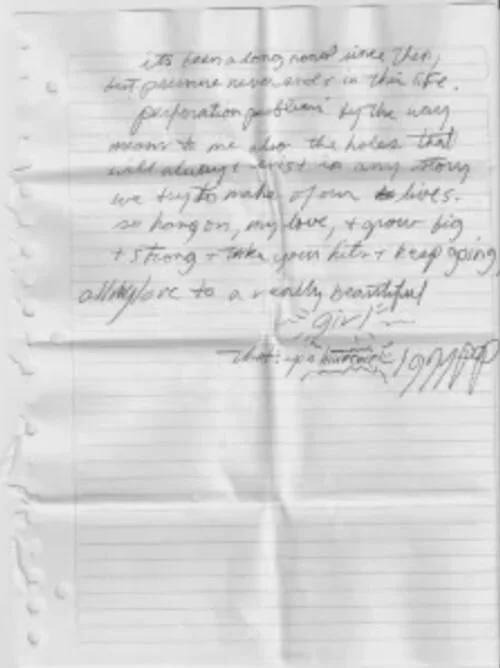 its been a long road since then,
but pressure never ends in this life.
perforation problems by the way
means to me also the holes that
will always exist in any story
we try to make of our lives.
so hang on, my love, & grow big
& strong & take your hits & keep going
all my love to a really beautiful
girl
that's you